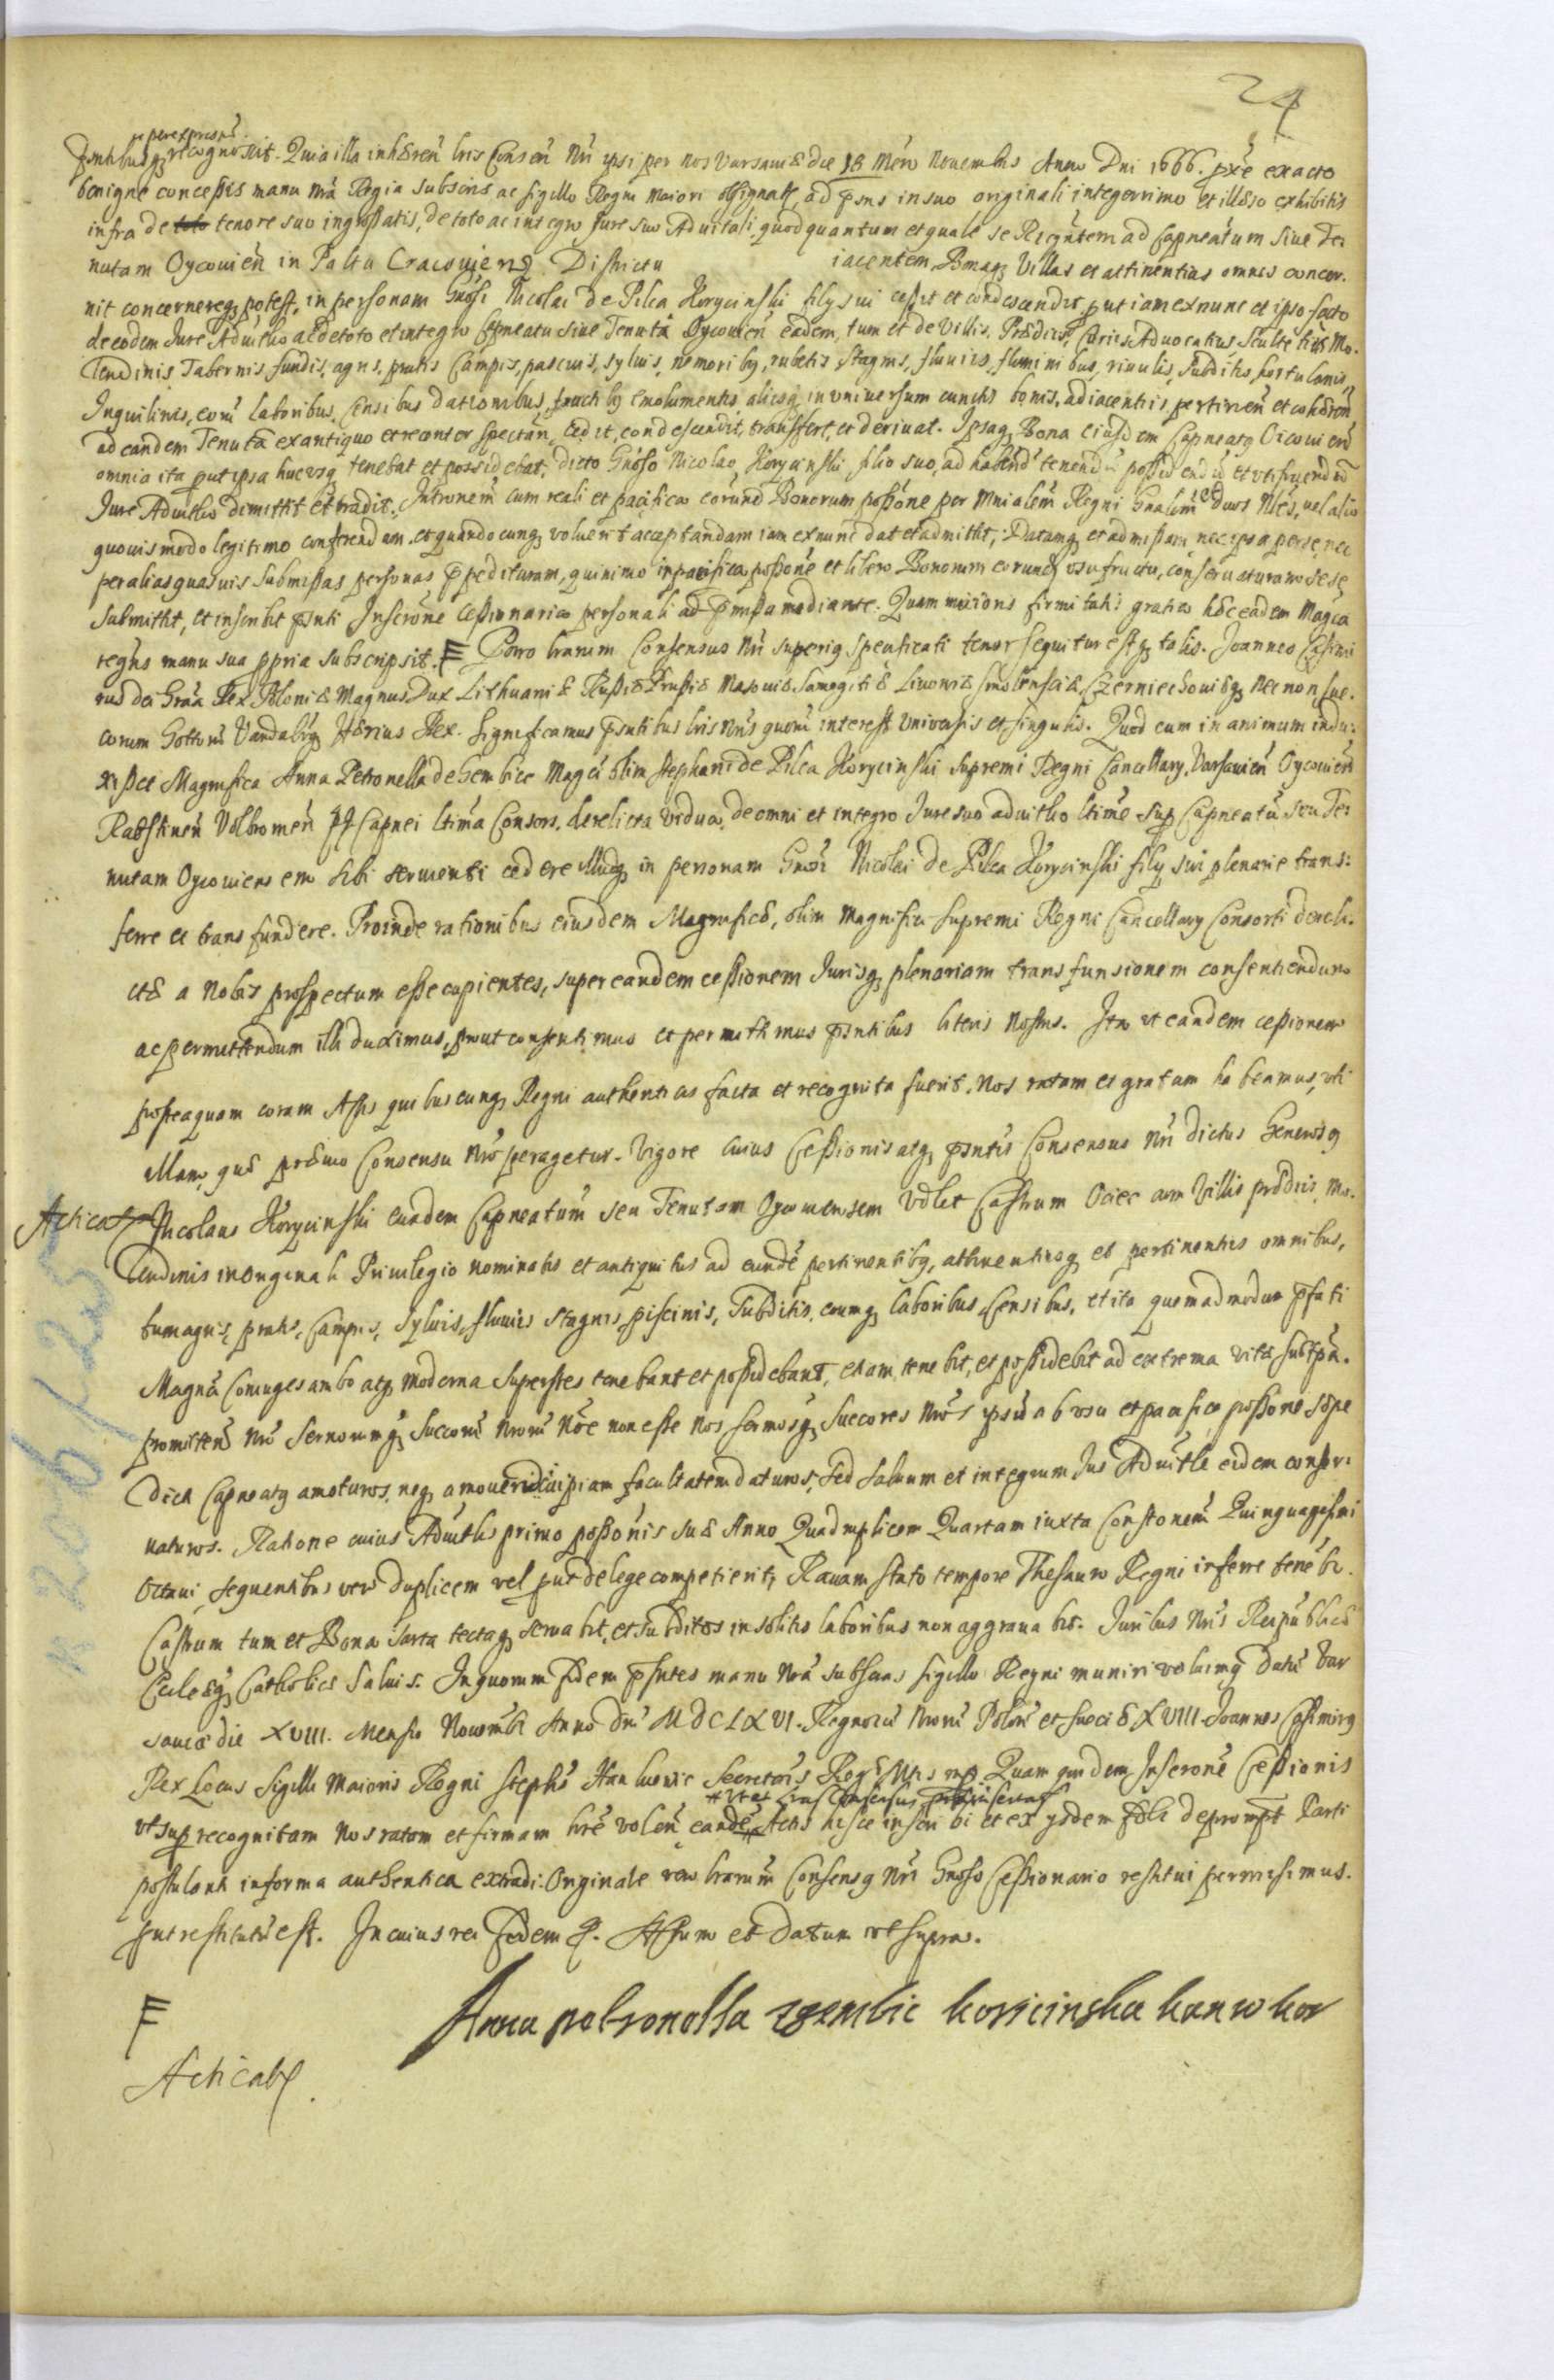 24
per expressũ
pñtibusq recognoscit. Quia illa inhæreñ lris Conseñ Nri ipsi per nos Varsauiæ die 18 Mens Nouembris Anno Dni 1666. exacto
benigne concessis manu nrã Regia subscris ac sigillo Regni maiori obsignatis, ad pñs in suo originali integerrimo et illæso exhibitis
infra de toto tenore suo ingrossatis, de toto ac integro Jure suo Aduitali, quod quantum et quale se Recgñtem ad Capneatum siue Te:
nutam Oycouieñ in Paltu Cracouieng Districtu iacentem, Bonaq Villas et attinentias omnes concer.
nit concernereq potest, in personam Gñosi Nicolai de Pilca Korycinski filij sui cessit et condescendit, put iam ex nunc et ipso facto
de eodem Jure Aduitlio ac de toto et integro Capneatu siue Tenuta Oycouieñ eadem, tum et de Villis, Prædiis, Curiis, Aduocatiis Sculte tiis Mo.
lendinis Tabernis, fundis, agris, pratis Campis, pascuis, syluis, nemoribq, rubetis Stagnis, fluuiis, fluminibus, riuulis, subditis, hortulanis,
Inquilinis, eorũ laboribus, Censibus dationibus, fructibq emolumentis aliisq in vniuersum cunctis bonis, adiacentiis pertineñ et cohæreñ
ad eandem Tenutã ex antiquo et recenter spectañ, cedit, condescendit, transffert, et deriuat. Ipsaq Bona eiusdem Capneatq Oicouieñ
omnia ita put ipsa hucusq tenebat et possidebat, dicto Gñoso Nicolao Korycinski filio suo, ad habend tenendũ possidendũ et vtifruendũ
Jure Aduitlio dimittit et tradit. Intromem cum reali et pacifica eorund Bonorum possõne per Mnialem Regni Gnalem et duos Nles, uel alio
quouis modo legitimo conferendam et quandocunq voluerit acceptandam iam ex nunc dat et admittit; Datamq et admissam nec ipsa per se, nec
per alias quasuis submissas personas impedituram, quinimo in pacifica possone et libero Bonorum eorundq vsufructu, conseruaturam sese
submittit, et inscribit pñti Inscrõne Cessionaria personali ad præmissa mediante. Quam firmitatis gratia hæc eadem Magca
regñs manu sua ppria subscripsit. F Porro lrarum Consensus Nri superiq specificati tenor sequitur estq talis. Joannes Casimi
rus Dei Grãa Rex Poloniæ Magnus Dux Lithuaniæ Russiæ Prussiæ Masouiæ Samogitiæ Liuoniæ Smolensciæ, Czerniechouiæq Nec non Sue.
corum Gottorũ Vandalorq Hærius Rex. Significamus pñtibus lris Nris quorũ interest vniuersis et singulis. Quod cum in animum indu:
xisset Magnifica Anna Petronella de Gembice Magci olim Stephani de Pilca Korycinski Supremi Regni Cancellarij, Varsauieñ Oycouieñ
Rabsztineñ Volbromeñ Capnei ltima Consors, derelicta vidua, de omni et integro Jure suo aduitlio ltime sup Capneatũ seu Te:
nutam Oycouiensem sibi seruienti cedere illudq in personam Gnosi Nicolai de Pilca Korycinski filij sui plenarie trans:
ferre et transfundere. Proinde rationibus eiusdem Magnificæ, olim Magnifici Supremi Regni Cancellarij Consorti dereli.
ctæ a Nobis prospectum esse cupientes, super eandem cessionem Jurisq plenariam transfunsionem consentiendum
ac permittendum illi duximus, prout consentimus et permittimus pñtibus literis Nostris. Ita vt eandem cessionem
posteaquam coram Actis quibuscunq Regni authenticis facta et recognita fuerit. Nos ratam et gratam habeamus, vti
illam, quæ præuio Consensu Nro peragetur. Vigore cuius Cessionis atq pñtis Consensus Nri dictus Generosq
Acticat Nicolaus Korycinski eandem Capneatum seu Tenutam Oycouiensem vdlet Castrum Ociec cum Villis prædiis, Mo.
lendinis in originali Priuilegio nominatis et antiquitus ad eundẽ pertinentibq, attinentiisq et pertinentiis omnibus,
tum agris, pratis, Campis, Syluis, fluuiis Stagnis, piscinis, Subditis, eorumq laboribus Censibus, et ita quemadmodum pfati
Magnci Coniuges ambo atq moderna Superstes tenebant et possidebant, etiam tenebit, et possidebit ad extrema vitæ suæ tpa.
promitteñ Nro Sernorumq Succorũ Nrorũ Nõe non esse Nos Sernosq Succores Nros ipsũ ab vsu et pacifica possone sæpe
dicti Capneatq amoturos, neq amouendi cuipiam facultatem daturos, sed saluum et integrum Jus Aduitle eidem conser:
uaturos. Ratione cuius Aduitlis primo possonis suæ Anno Quadruplicem Quartam iuxta Constonem Quinquagesimi
Octaui, sequentibus vero duplicem vel put de lege competierit, Rauam stato tempore Thesauro Regni inferre tenebr.
Castrum tum et Bona sarta tectaq seruabit, et subditos insolitis laboribus non aggrauabit. Juribus Nris Reipublicæ
Ecclesæq Catholicæ Saluis. In quorum fidem pñtes manu Nrã subscrias sigillo Regni muniri volumq Datũ Var
sauiæ die XVIII. Mensis Nouembr Anno Dni MDCLXVI. Regnorũ Nrorũ Polon et Sueciæ XVIII. Joannes Casimirq
Rex Locus Sigilli Maioris Regni Stephũ Hankiewic Secretarius Regæ Mtis mp. Quam quidem Inscronẽ Cessionis
vt sup recognitam Nos ratam et firmam hrẽ voleñ eandẽ Actis hisce inscribi et ex ijsdem fideli depromptõe Parti
postulanti in forma authentica extradi: Originale vero lrarum Consensq Nri Gnoso Cessionario restitui permisimus.
put restitutũ est. In cuius rei fidem . Actum et Datum vt supra.
F
Anna petronella zgembic koricinska kanw kor
Acticat